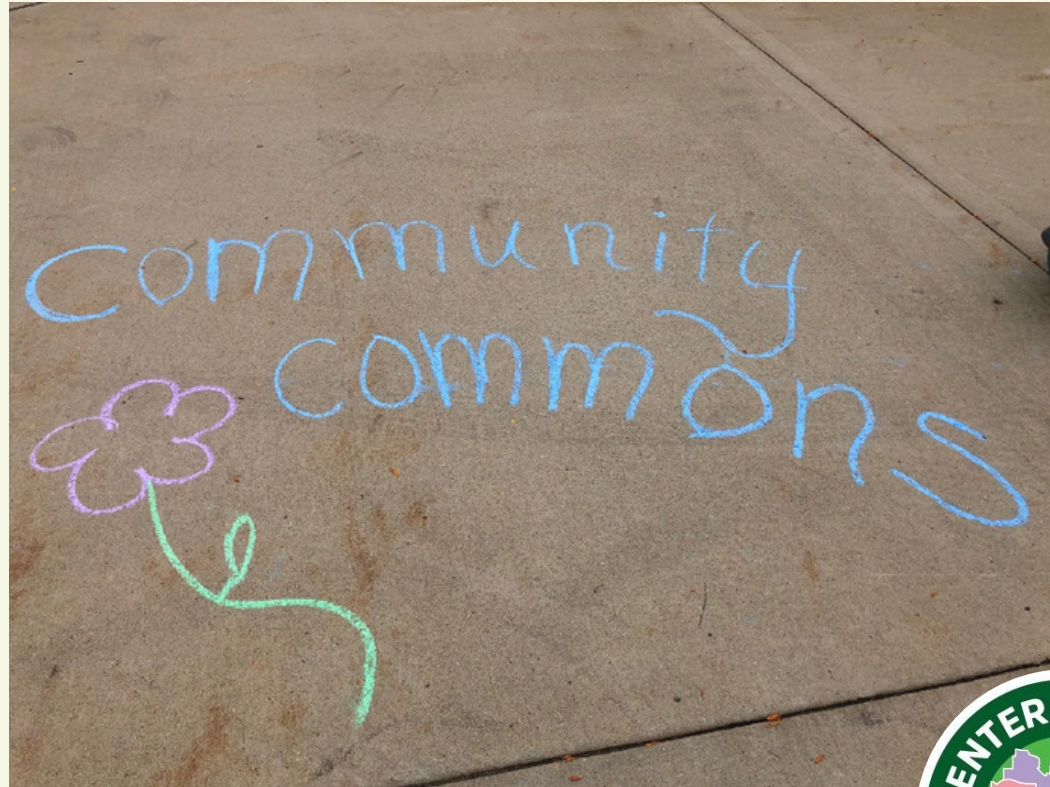 community
commons
ENTER